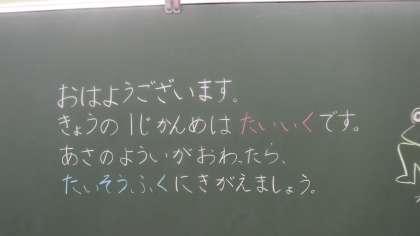 おはようございます。
きょうの1じかんめはたいいくです。
あさのよういがおわったら、
たいそうふくにきがえましょう。